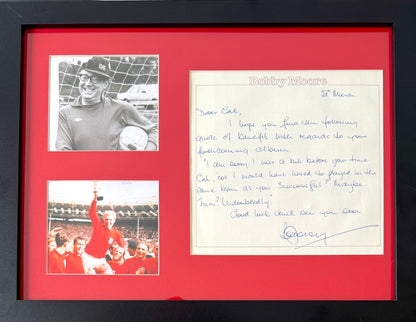 Bobby Moore
March
Dear Cat,
I hope you find the following
quote of benefit with regards to your
forthcoming album.
"I am sorry I was a bit before your time
Cat, as I would have loved to played in the
same team as you. Successful? Maybe
Fun? Undoubtedly"
Good luck and see you soon